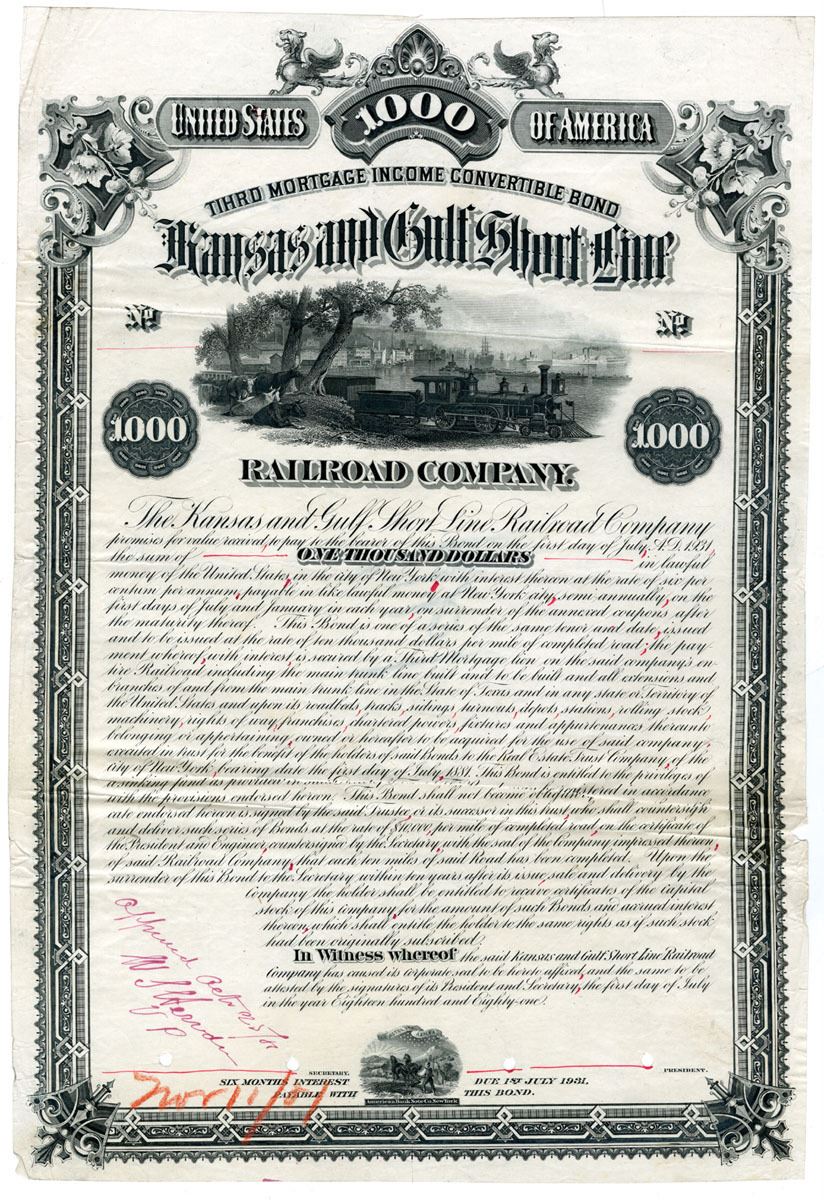 UNITED STATES
1.000
OF AMERICA
TIHRD MORTGAGE INCOME CONVERTIBLE BOND
Kansas and Gulf Short Line
No
No
1.000
1.000
RAILROAD COMPANY.
The Kansas and Gulf Short Line Railroad Company
promises for value received, to pay to the bearer of this Bond on the first day of July, A.D. 1931,
the sum of ONE THOUSAND DOLLARS in lawful
money of the United States, in the city of New York, with interest thereon at the rate of six per
centum per annum, payable in like lawful money at New York city, semi-annually, on the
first days of July and January in each year, on surrender of the annexed coupons after
the maturity thereof. This Bond is one of a series of the same tenor and date, issued
and to be issued at the rate of ten thousand dollars per mile of completed road; the pay-
ment whereof, with interest is secured by a Third Mortgage lien on the said company's en-
tire Railroad including the main trunk line built and to be built and all extensions and
branches of and from the main trunk line in the State of Texas and in any state or Territory of
the United States and upon its roadbeds, tracks, sidings, turnouts, depots, stations, rolling stock,
machinery, rights of way, franchises, chartered powers, fixtures and appurtenances thereunto
belonging or appertaining, owned or hereafter to be acquired for the use of said company,
executed in trust for the benefit of the holders of said Bonds to the Real Estate Trust Company, of the
city of New York, bearing date the first day of July, 1881. This Bond is entitled to the privileges of
a sinking fund as provided in
with the provisions endorsed hereon. This Bond shall not become in accordance
cate endorsed hereon is signed by the said Trustee or its successor in this trust, who shall countersign
and deliver such series of Bonds at the rate of $10,000, per mile of completed road, on the certificate of
the President and Engineer, countersigned by the Secretary, with the seal of the Company impressed thereon,
of said Railroad Company, that each ten miles of said Road has been completed. Upon the
surrender of this Bond to the Secretary within ten years after its issue, sale and delivery by the
Company the holder shall be entitled to receive certificates of the capital
stock of this company for the amount of such Bonds and accrued interest
thereon, which shall entitle the holder to the same rights as if such stock
had been originally subscribed.
In Witness whereof the said Kansas and Gulf Short Line Railroad
Company has caused its corporate seal to be hereto affixed, and the same to be
attested by the signatures of its President and Secretary, the first day of July
in the year Eighteen hundred and Eighty-one.
SECRETARY.
PRESIDENT.
SIX MONTHS INTEREST DUE 1st JULY 1931.
PAYABLE WITH THIS BOND.
American Bank Note Co. New York